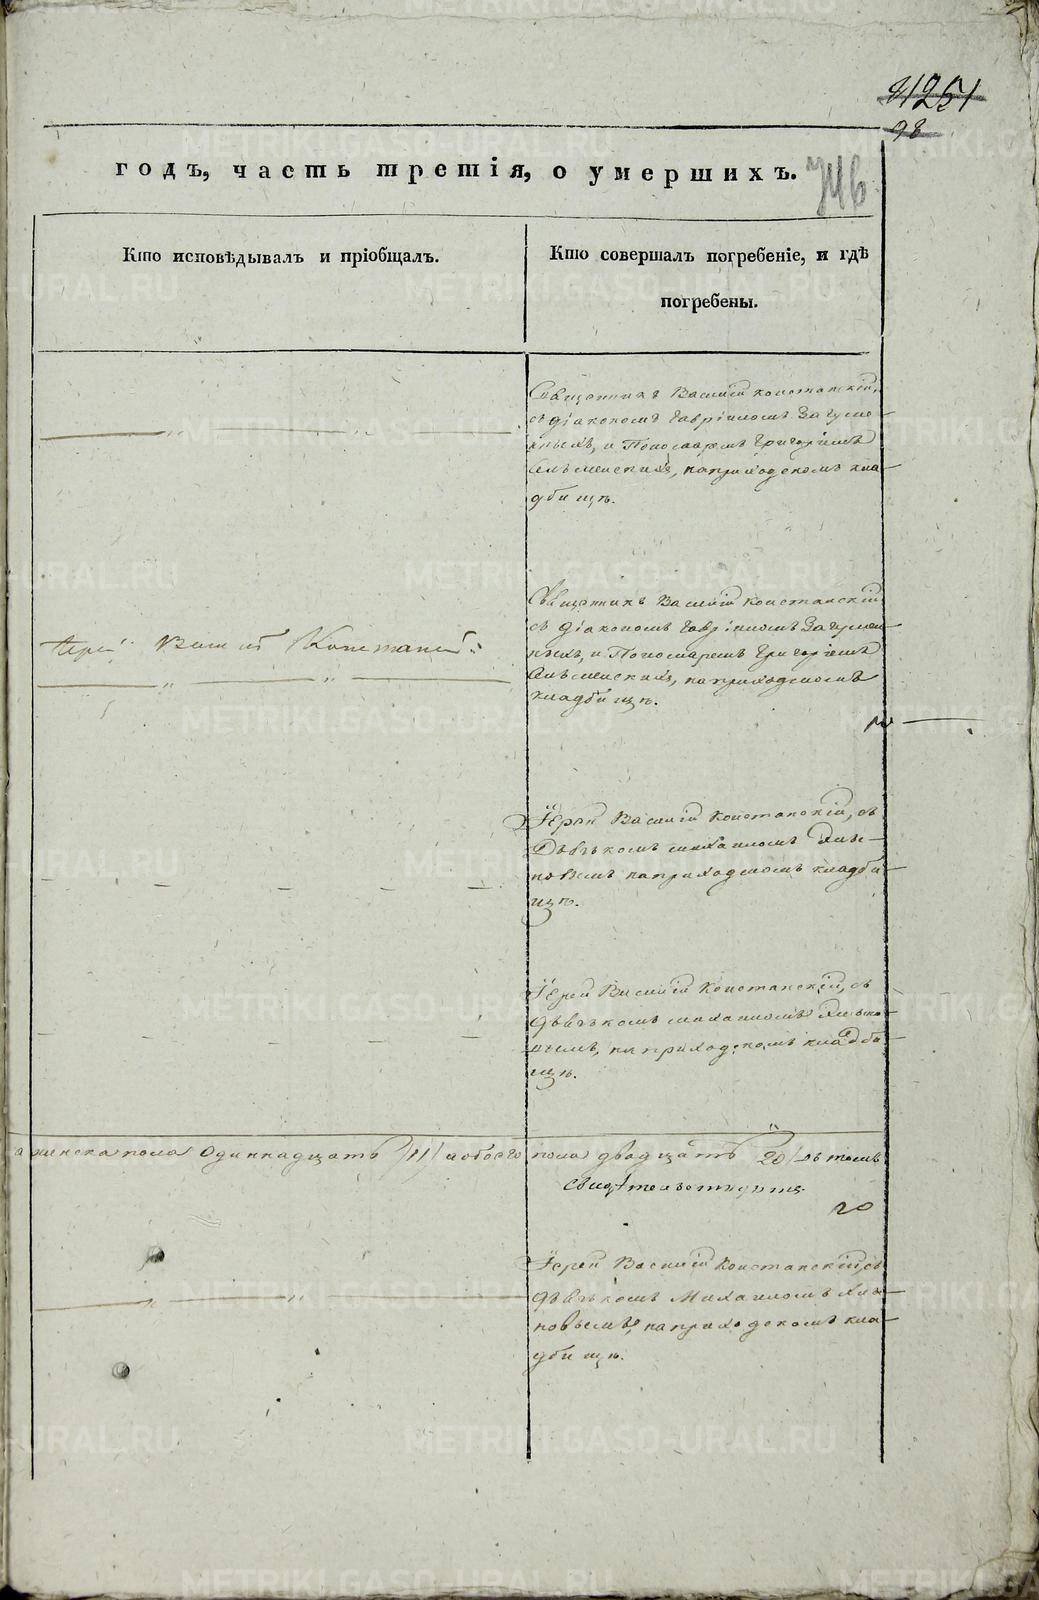 1251
98
годъ, часть третія, о умершихъ.
746
Кто исповѣдывалъ и пріобщалъ.
Кто совершалъ погребеніе, и гдѣ
погребены.
Священникъ Василій Констанскій,
съ діакономъ Гавріиломъ Загуме
нныхъ, и Пономаремъ Григоріемъ
на приходскомъ кла
дбищѣ.
Іерей Василій Констанскій
Священникъ Василій Констанскій
съ діакономъ Гавріиломъ Загумен
ныхъ, и Пономаремъ Григоріемъ
на приходскомъ
кладбищѣ.
Іерей Василій Констанскій, съ
Дьячкомъ Михаиломъ
на приходскомъ кладби
щѣ.
Іерей Василій Констанскій, съ
дьячкомъ Михаиломъ
на приходскомъ кладби
щѣ.
а женска пола одиннадцать /11/ и обоего пола двадцать /20/ въ томъ
свидѣтельствуютъ
20
Іерей Василій Констанскій, съ
дьячкомъ Михаиломъ
на приходскомъ кла
дбищѣ.
METRIKI.GASO-URAL.RU